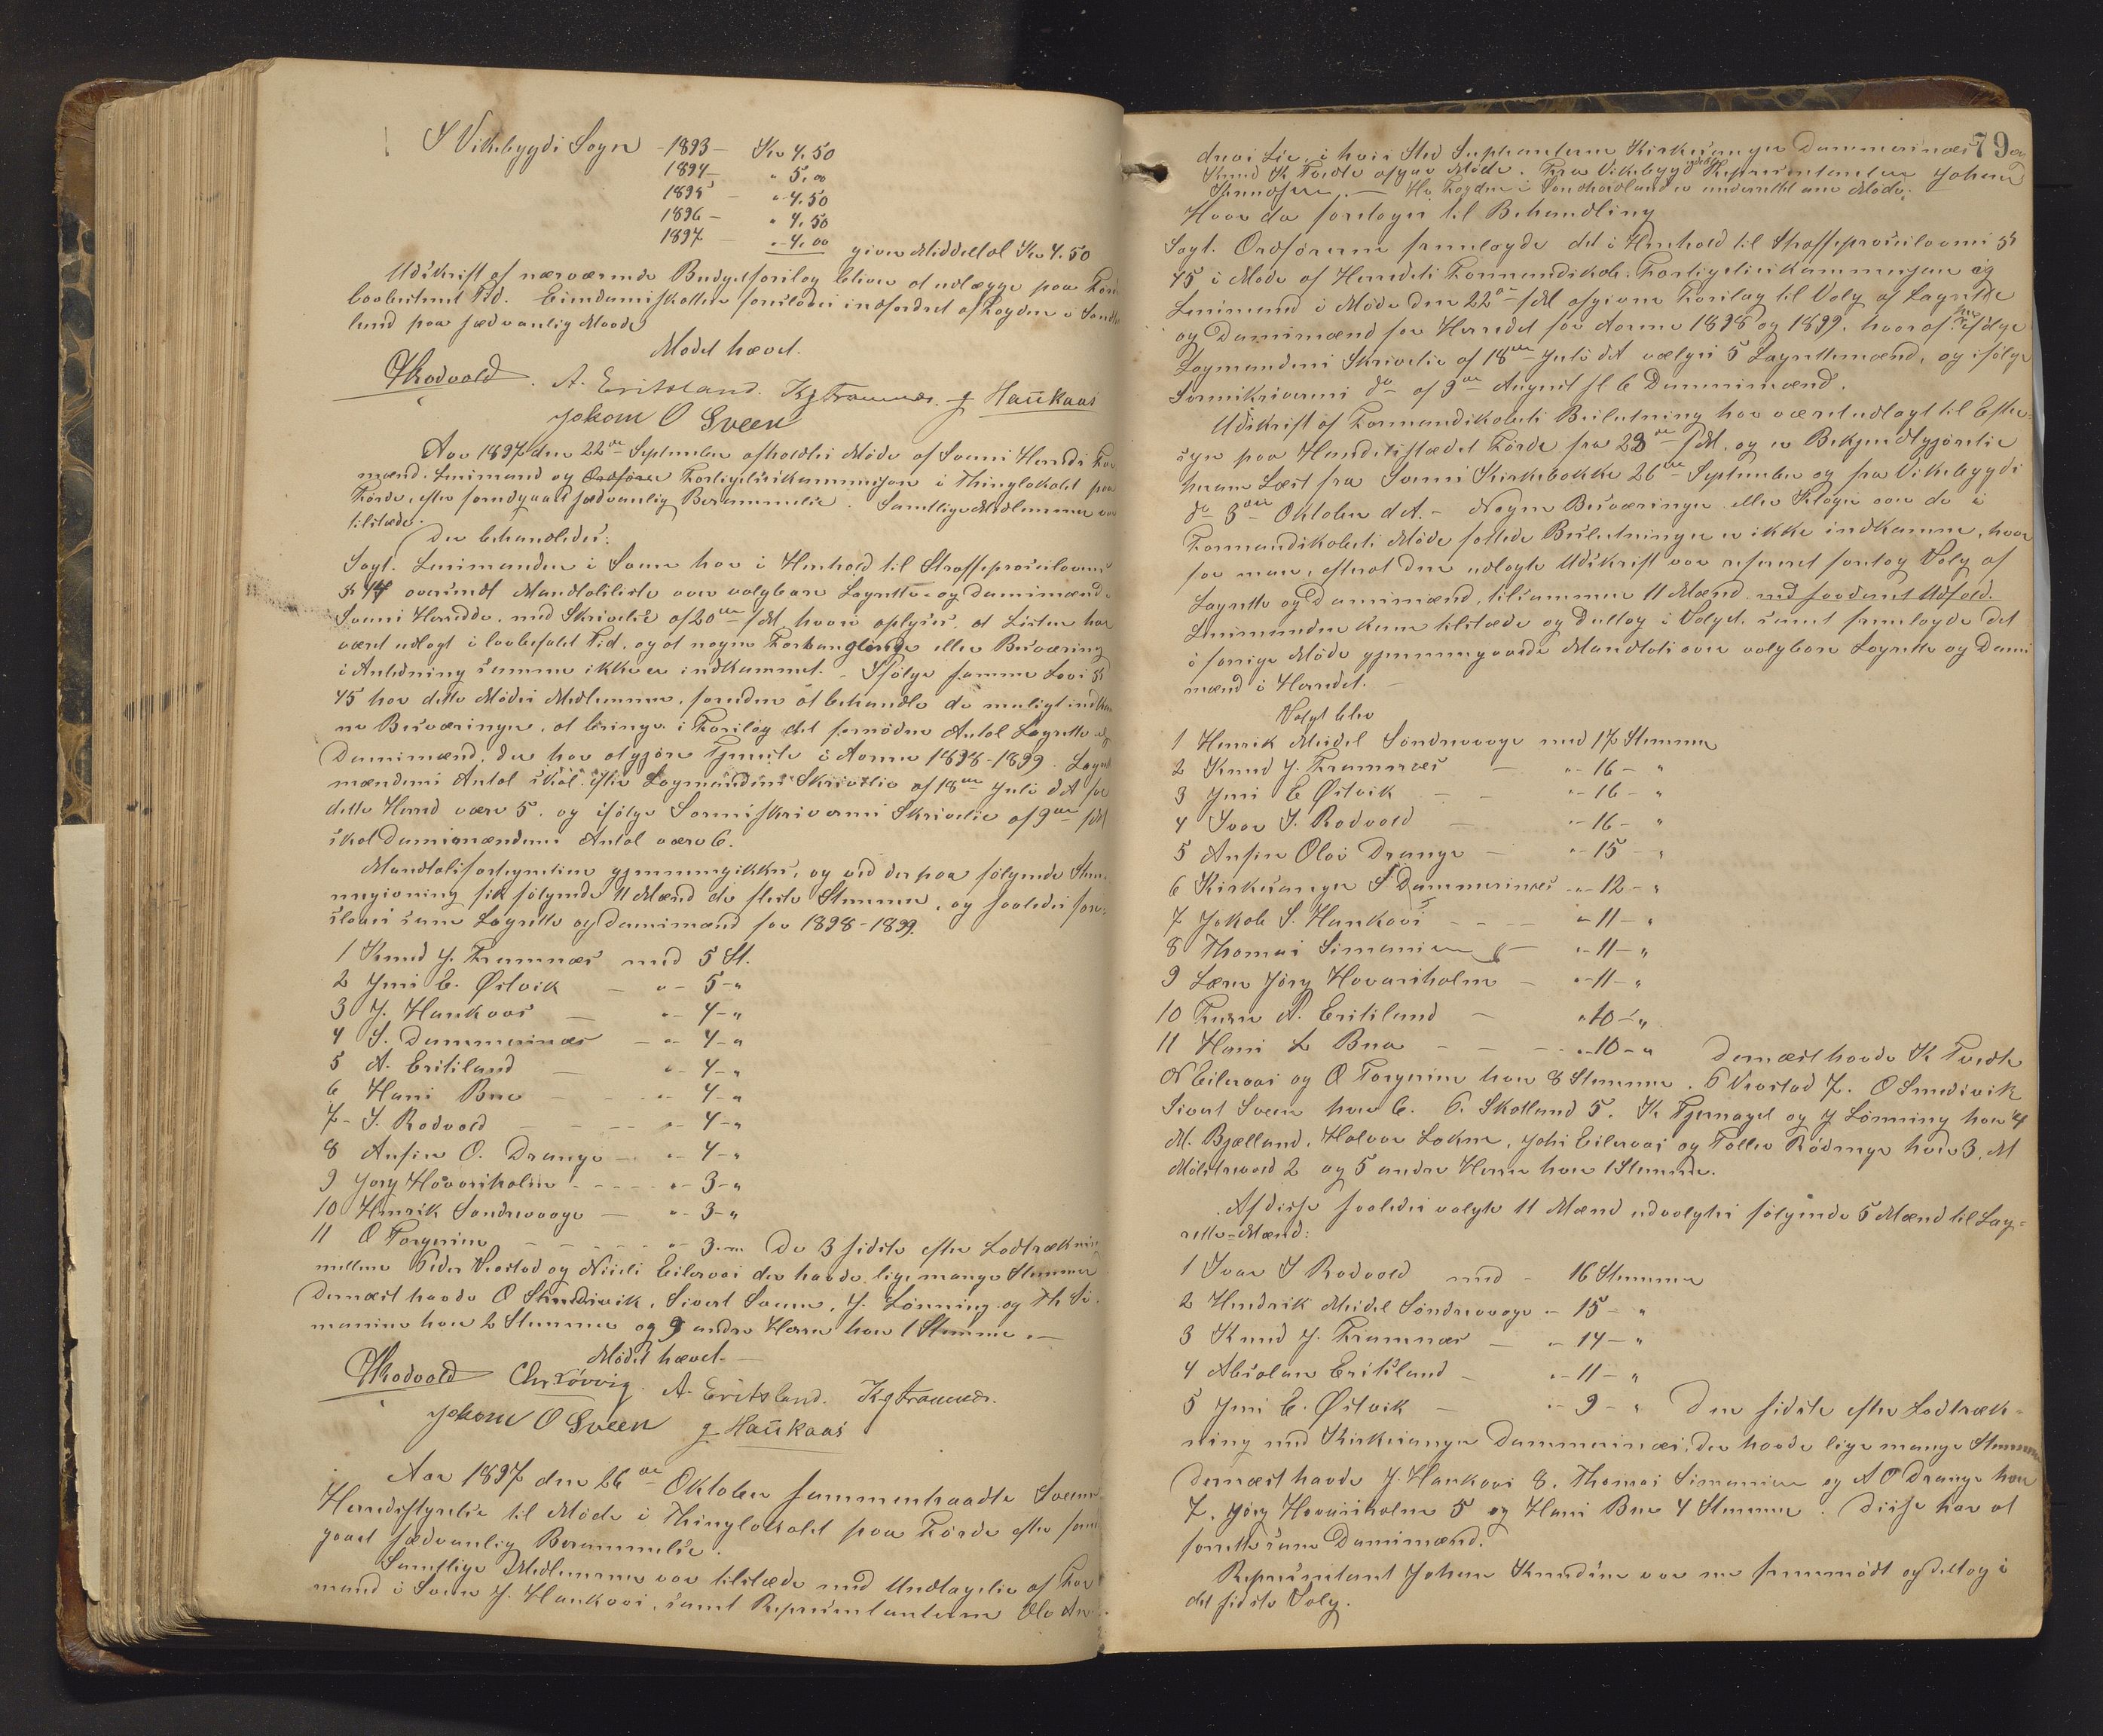 I Vikebygds Sogn - 1893 - Kr 4.50
1894 - " 5.00
1895 - " 4.50
1896 - " 4.50
1897 - " 4.00 giver Middeltal Kr 4.50
Udskrift af nærværende Budgetforslag bliver at udlægge paa
lovbestemt Tid. Eiendomsskatten foreslaaes indfordret af Fogden i
lund paa sædvanlig Maade
Mødet hævet.
I Rodvold. A. Eritsland. K J Framnæs. J Haukaas
Johan O Sveen
Aar 1897 den 22de September afholdtes Møde af Sveens Herreds For
mænd, Lensmand og Ordfører Forligelseskommissjon i Thinglokalet paa
Førde, efter forudgaaet sædvanlig Berammelse. Samtlige Medlemmer var
tilstæde.
Der behandledes:
Sagl. Lensmanden i Sveen har i Henhold til Straffeproceslovens
§ 44 oversendt Mandtalsliste over valgbare Lagrette- og Domsmænd i
Sveens Herred, med Skrivelse af 20de ds M, hvori oplyses, at Listen har
været udlagt i lovbefalet Tid, og at nogen Forlangende eller Besværing
i Anledning samme ikke er indkommet. - Ifølge samme Lovs §
45 har dette Mødes Medlemmer, foruden at behandle de muligt indkom
ne Besværinger, at bringe i Forslag det fornødne Antal Lagrette og
Domsmænd, der har at gjøre Tjeneste i Aarene 1898-1899. Lagrette
mændenes Antal skal ifølge Lagmandens Skrivelse af 18de Juli d A for
dette Herred være 5, og ifølge Sorenskriverens Skrivelse af 9de
skal Domsmændenes Antal være 6.
Mandtalsfortegnelsen gjennemgikkes, og ved derpaa følgende Stem
megivning fik følgende 11 Mænd de fleste Stemmer, og saaledes fore-
slaaes som Lagrette og Domsmænd for 1898-1899.
1 Knud J. Framnæs med 5 St.
2 Jens E. Østvik - " - 5 - "
3 J. Haukaas - " - 4 - "
4 S. Dommersnæs - " - 4 - "
5 A. Eritsland - " - 4 - "
6 Hans Bue - " - 4 - "
7 I. Rodvold - " - 4 - "
8 Ansin O. Drange - " - 4 - "
9 Jørg Hovarsholm - " - 3 - "
10 Henrik Søndrevaage - " - 3 - "
11 O Torgersen - " - 3 - " De 3 sidste efter Lodtrækning
mellem Peder Vrostad og Niels Eileraas der havde lige mange Stemmer
Dernæst havde O Smedsvik, Sivert Sveen, J. Lønning og Th Si-
monsen hver 2 Stemmer og 9 andre Herrer hver 1 Stemme. -
Mødet hævet. -
I Rodvold Chr Løvvig. A. Eritsland. K J Framnæs.
Johan O Sveen J Haukaas
Aar 1897 den 26de Oktober sammentraadte Sveens
Herredsstyrelse til Møde i Thinglokalet paa Førde efter forud
gaaet sædvanlig Berammelse.
Samtlige Medlemmer var tilstæde med Undtagelse af For
mand i Sveen J. Haukaas, samt Repræsentanterne Ole An
79
dreas Lie, i hvis Sted Suppleanterne Kirkesanger Dommersnæs og
Knud K Tvedte afgav Møde. Fra Vikebygd Repræsentanten Johan
Knudsen. - Hr. Fogden i Søndhordland er underrettet om Møde.
Hvor da foretoges til Behandling
Sagl. Ordføreren fremlagde det i Henhold til Straffeproceslovens §
45 i Møde af Herredets Formandskab, Forligelseskommissjon og
Lensmand i Møde den 22de ds M afgivne Forslag til Valg af Lagrette
og Domsmænd for Herredet for Aarene 1898 og 1899, hvoraf her ifølge
Lagmandens Skrivelse af 18de Juli d A vælges 5 Lagrettemænd, og ifølge
Sorenskriverens do af 9de August sl 6 Domsmænd.
Udskrift af Formandskabets Beslutning har været udlagt til Efter-
syn paa Herredstinget Førde fra 23de ds M, og er Bekjendtgjørelse
herom Læst fra Sveens Kirkebakke 26de September og fra Vikebygds
do 3die Oktober d A. - Nogen Besværinger eller Klager over de i
Formandskabets Møde fattede Beslutninger er ikke indkomne, hvor
for man, efterat den udlagte Udskrift var refereret foretog Valg af
Lagrette og Domsmænd, tilsammen 11 Mænd med saadant Udfald.
Lensmanden kom tilstæde og Deltog i Valget samt fremlagde det
i forrige Møde gjennemgaaede Mandtal over valgbare Lagrette og Doms
mænd i Herredet. -
Valgt blev
1 Henrik Meidel Søndrevaage med 17 Stemmer
2 Knud J. Framnæs - " - 16 - "
3 Jens E Østvik - - " - 16 - "
4 Ivar I. Rodvold - " - 16 - "
5 Ansin Olai Drange - " - 15 - "
6 Kirkesanger S Dommersnæs - " - 12 - "
7 Jakob S. Haukaas - - - " - 11 - "
8 Thomas Simonsen - " - 11 - "
9 Lærer Jørg Hovarsholm - " - 11 - "
10 Lærer A. Eritsland - " 10 - "
11 Hans L Bue - - - " - 10 - " Dernæst havde K Tvedte
N Eileraas og O Torgersen hver 8 Stemmer. P Vrostad 7. O Smedsvik
Sivert Sveen hver 6. P. Skotland 5. K. Tjernagel og J Lønning hver 4
M. Bjælland, Halvor Lokna, Johs Eileraas og Tollev Rødinge hver 3. M
Mølstrevold 2 og 5 andre Herrer hver 1 Stemme.
Af disse saaledes valgte 11 Mænd udvalgtes følgende 5 Mænd til Lag-
rette-Mænd:
1 Ivar I Rodvold med - 16 Stemmer
2 Hendrik Meidel Søndrevaage - 15 - "
3 Knud J. Framnæs - " - 14 - "
4 Absolon Eritsland - " - 11 - "
5 Jens E. Østvik - " - 9 - " Den sidste efter Lodtræk-
ning med Kirkesanger Dommersnæs, der havde lige mange Stemmer
Dernæst havde J. Haukaas 8, Thomas Simonsen og A O Drange hver
7, Jørg Hovarsholm 5 og Hans Bue 4 Stemmer. Disse har at
forrette som Domsmænd.
Repræsentant Johan Knudsen var nu fremmødt og deltog i
det sidste Valg.